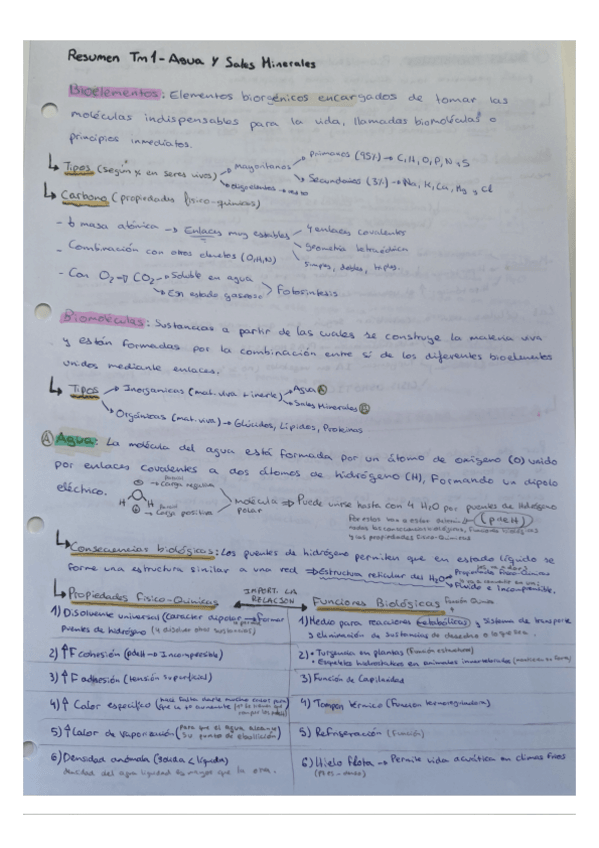 Resumen Tm1 - Agua y Sales Minerales
Bioelementos: Elementos biorgénicos encargados de tomar las
moléculas indispensables para la vida, llamadas biomoléculas o
principios inmediatos.
Tipos (según % en seres vivos) → Mayoritarios → Primarios (95%) → C, H, O, P, N, S
→ Secundarios (3%) → Na, K, Ca, Mg, Cl
→ Oligoelementos → resto
Carbono (propiedades físico-químicas)
- masa atómica → Enlaces muy estables 4 enlaces covalentes
geometría tetraédrica
simples, dobles, triples.
- Combinación con otros eltos (O, H, N)
- Con O2 → CO2 → Soluble en agua
→ En estado gaseoso > Fotosíntesis
Biomoléculas: Sustancias a partir de las cuales se construye la materia viva
y están formadas por la combinación entre sí de los diferentes bioelementos
unidos mediante enlaces.
Tipos → Inorgánicas (mat. viva + inerte) → Agua (A)
→ Sales Minerales (B)
→ Orgánicas (mat. viva) → Glúcidos, Lípidos, Proteínas
(A) Agua: La molécula del agua está formada por un átomo de oxígeno (O) unido
por enlaces covalentes a dos átomos de hidrógeno (H), Formando un dipolo
eléctrico.
Parcial
Carga negativa
O
H H
Parcial
Carga positiva
molécula polar ⇒ Puede unirse hasta con 4 H2O por puentes de Hidrógeno
(pdeH)
y las propiedades Físico-Químicas
Consecuencias biológicas: Los puentes de hidrógeno permiten que en estado líquido se
forme una estructura similar a una red ⇒ Estructura reticular del H2O →
Propiedades Físico-Químicas
Fluido e Incompresible.
Propiedades Físico-Químicas
IMPORT. LA RELACIÓN
Funciones Biológicas
1) Disolvente universal (carácter dipolar → formar
puentes de hidrógeno (y disolver otras sustancias)
1) Medio para reacciones metabólicas y sistema de transporte
y eliminación de sustancias de desecho o lo que sea.
2) ↑F cohesión (pdeH → Incompresible)
2) • Turgencia en plantas (Función estructural)
• Esqueleto hidrostático en animales invertebrados
3) ↑F adhesión (tensión superficial)
3) Función de Capilaridad
4) ↑ Calor específico (hace falta darle mucho calor para
que la Tª aumente
4) Tampón térmico (Función termorreguladora)
5) ↑ Calor de Vaporización (Para que el agua alcance
su punto de ebullición)
5) Refrigeración (función)
6) Densidad anómala (sólida < líquida)
densidad del agua líquida es mayor que la
6) Hielo flota → Permite vida acuática en climas fríos